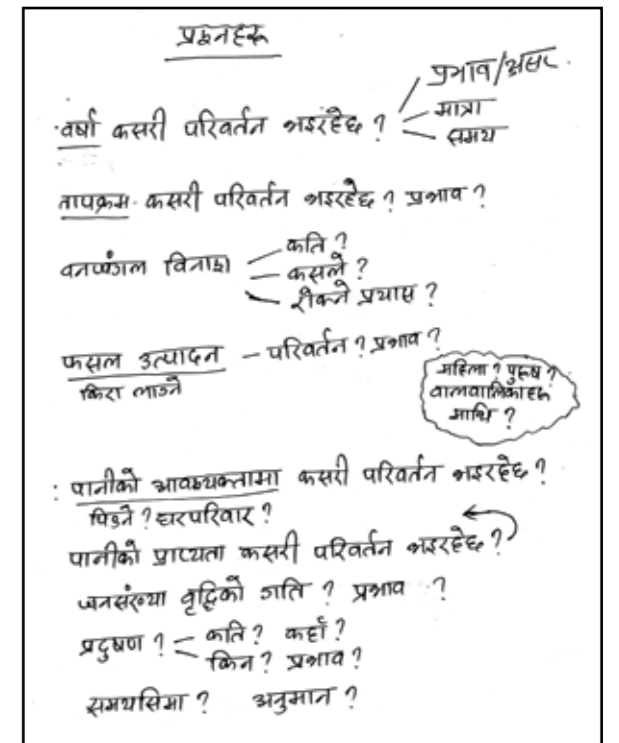 प्रश्नहरू
वर्षा कसरी परिवर्तन भइरहेछ ?
प्रभाव/असर
मात्रा
समय
तापक्रम कसरी परिवर्तन भइरहेछ ? प्रभाव ?
वनजंगल विनाश
कति ?
कसले ?
रोक्ने प्रयास ?
फसल उत्पादन – परिवर्तन ? प्रभाव ?
किरा लाग्ने
महिला ? पुरूष ?
वालवालिकाहरू
माथि ?
: पानीको आवश्यक्तामा कसरी परिवर्तन भइरहेछ ?
पिउने ? घरपरिवार ?
पानीको प्राप्यता कसरी परिवर्तन भइरहेछ ?
जनसंख्या वृद्धिको गति ? प्रभाव ?
प्रदुषण ?
कति ? कहाँ ?
किन ? प्रभाव ?
समयसिमा ? अनुमान ?